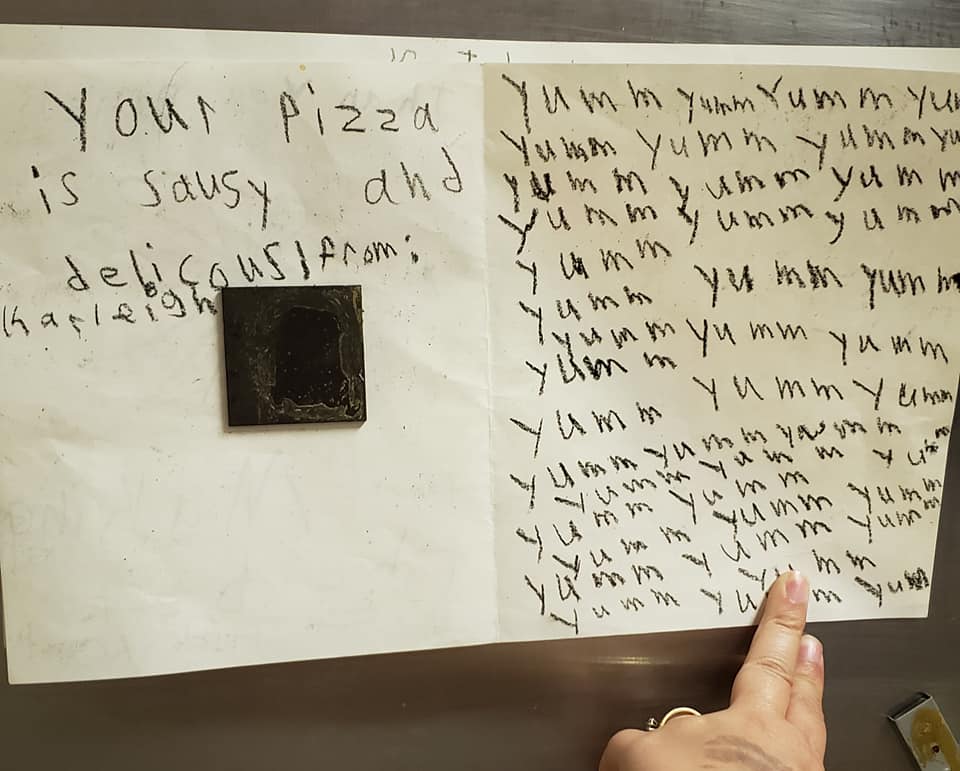 Your Pizza
is sausy and
delicous! from:
Kharleigh
Yumm yumm Yumm yu
Yumm yumm yumm yu
yumm yumm yumm
yumm yumm yumm
yumm
yumm yumm
yumm
yumm yumm yumm
yumm
yumm yumm
yumm
yumm yumm yumm
yumm
yumm yumm
yumm yumm yumm
yumm yumm yumm
yumm yumm
yumm mm
yumm yumm